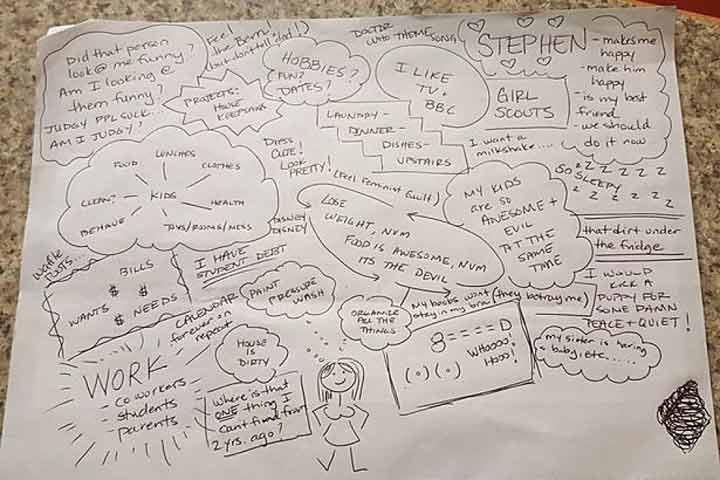 Did that person
look @ me funny?
Am I looking @
them funny?
JUDGY PPL SUCK...
AM I JUDGY?
Feel
the Bern!
(but don't tell dad!)
PROJECTS:
HOUSE
KEEPSAKES
HOBBIES?
FUN?
DATES?
DOCTOR
WHO THEME
SONG
I LIKE
TV.
BBC
STEPHEN
- makes me
happy
- make him
happy
- is my best
friend
- we should
do it now
GIRL
SCOUTS
LAUNDRY-
DINNER-
DISHES-
UPSTAIRS
I want a
milkshake....
SO SLEEPY
z z z z z z
z z z z z
FOOD
LUNCHES
CLOTHES
CLEAN?
KIDS
HEALTH
BEHAVE
TOYS/ROOMS/MESS
DRESS
CUTE!
LOOK
PRETTY!
(Feel Feminist Guilt)
DISNEY
DISNEY
LOSE
WEIGHT, NUM
FOOD IS AWESOME, NUM
ITS THE DEVIL
MY KIDS
are so
AWESOME +
EVIL
AT THE
SAME
TIME
that dirt under
the fridge
Waffle
BILLS
$ $
WANTS $ NEEDS
I HAVE
STUDENT DEBT
CALENDAR
forever on
repeat
PAINT
PRESSURE
WASH
ORGANIZE
ALL THE
THINGS
My boobs wont (they betray me)
stay in my bra
I WOULD
KICK A
PUPPY FOR
SOME DAMN
PEACE + QUIET!
8====D
WHOOOO
HOO!
(.)(.)
my sister is having
a baby, etc......
WORK
- coworkers
- students
- parents
HOUSE
IS
DIRTY
Where is that
ONE thing I
cant find from
2 yrs. ago?